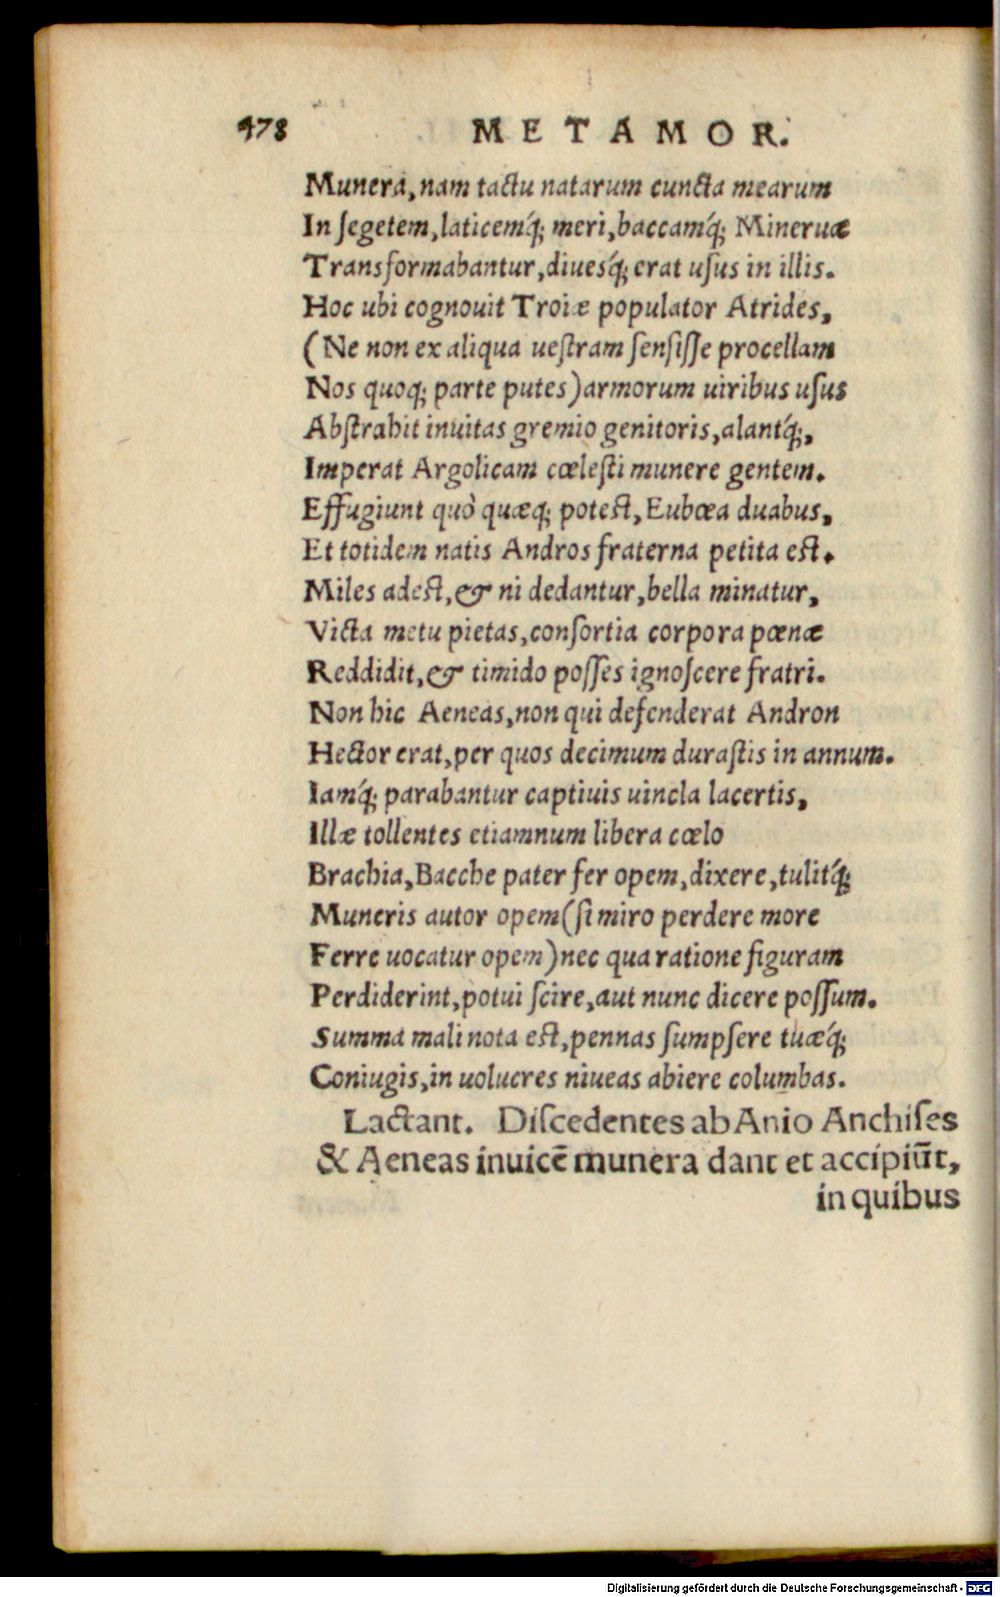 478 METAMOR.
Munera, nam tactu natarum cuncta mearum
In ſegetem, laticemq́; meri, baccamq́; Mineruæ
Transformabantur, diuesq́; erat uſus in illis.
Hoc ubi cognouit Troiæ populator Atrides,
(Ne non ex aliqua ueſtram ſenſiſſe procellam
Nos quoq; parte putes) armorum uiribus uſus
Abſtrahit inuitas gremio genitoris, alantq́;,
Imperat Argolicam cœleſti munere gentem.
Effugiunt quò quæq; potest, Eubœa duabus,
Et totidem natis Andros fraterna petita est.
Miles adest, & ni dedantur, bella minatur,
Victa metu pietas, conſortia corpora pœnæ
Reddidit, & timido poſſes ignoſcere fratri.
Non hic Aeneas, non qui defenderat Andron
Hector erat, per quos decimum duraſtis in annum.
Iamq́; parabantur captiuis uincla lacertis,
Illæ tollentes etiamnum libera cœlo
Brachia, Bacche pater fer opem, dixere, tulitq́;
Muneris autor opem (ſi miro perdere more
Ferre uocatur opem) nec qua ratione figuram
Perdiderint, potui ſcire, aut nunc dicere poſſum.
Summa mali nota est, pennas ſumpſere tuæq́;
Coniugis, in uolucres niueas abiere columbas.
Lactant. Diſcedentes ab Anio Anchiſes
& Aeneas inuicē munera dant et accipiūt,
in quibus
Digitalisierung gefördert durch die Deutsche Forschungsgemeinschaft - DFG